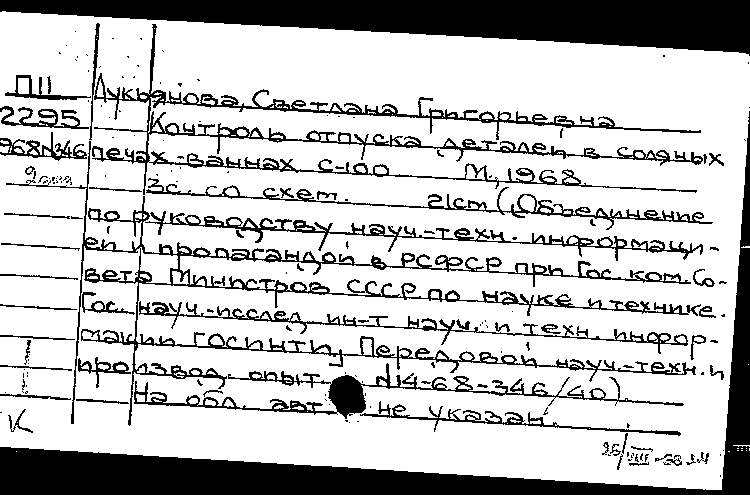 ПII Лукьянова, Светлана Григорьевна
2295 Контроль отпуска деталей в соляных
968№346 печах-ваннах С-100 М., 1968.
2 экз. 3с. со схем. 21см (Объединение
по руководству науч.-техн. информаци-
ей и пропагандой в РСФСР при Гос. ком. Со-
вета Министров СССР по науке и технике.
Гос. науч.-исслед. ин-т науч. и техн. инфор-
мации ГОСИНТИ, Передовой науч.-техн. и
производ. опыт. №14-68-346/40)
На обл. авт не указан.
К